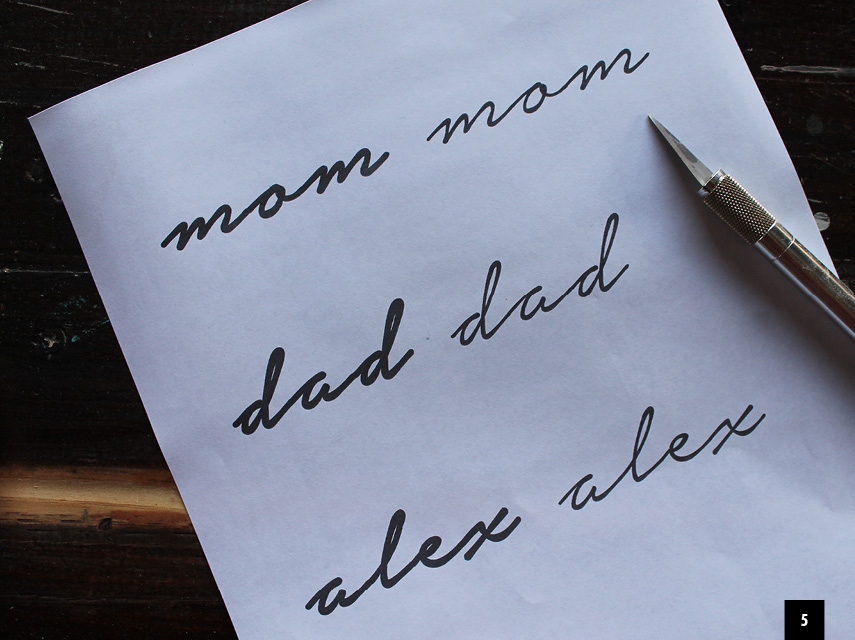 mom mom
dad dad
alex alex
5